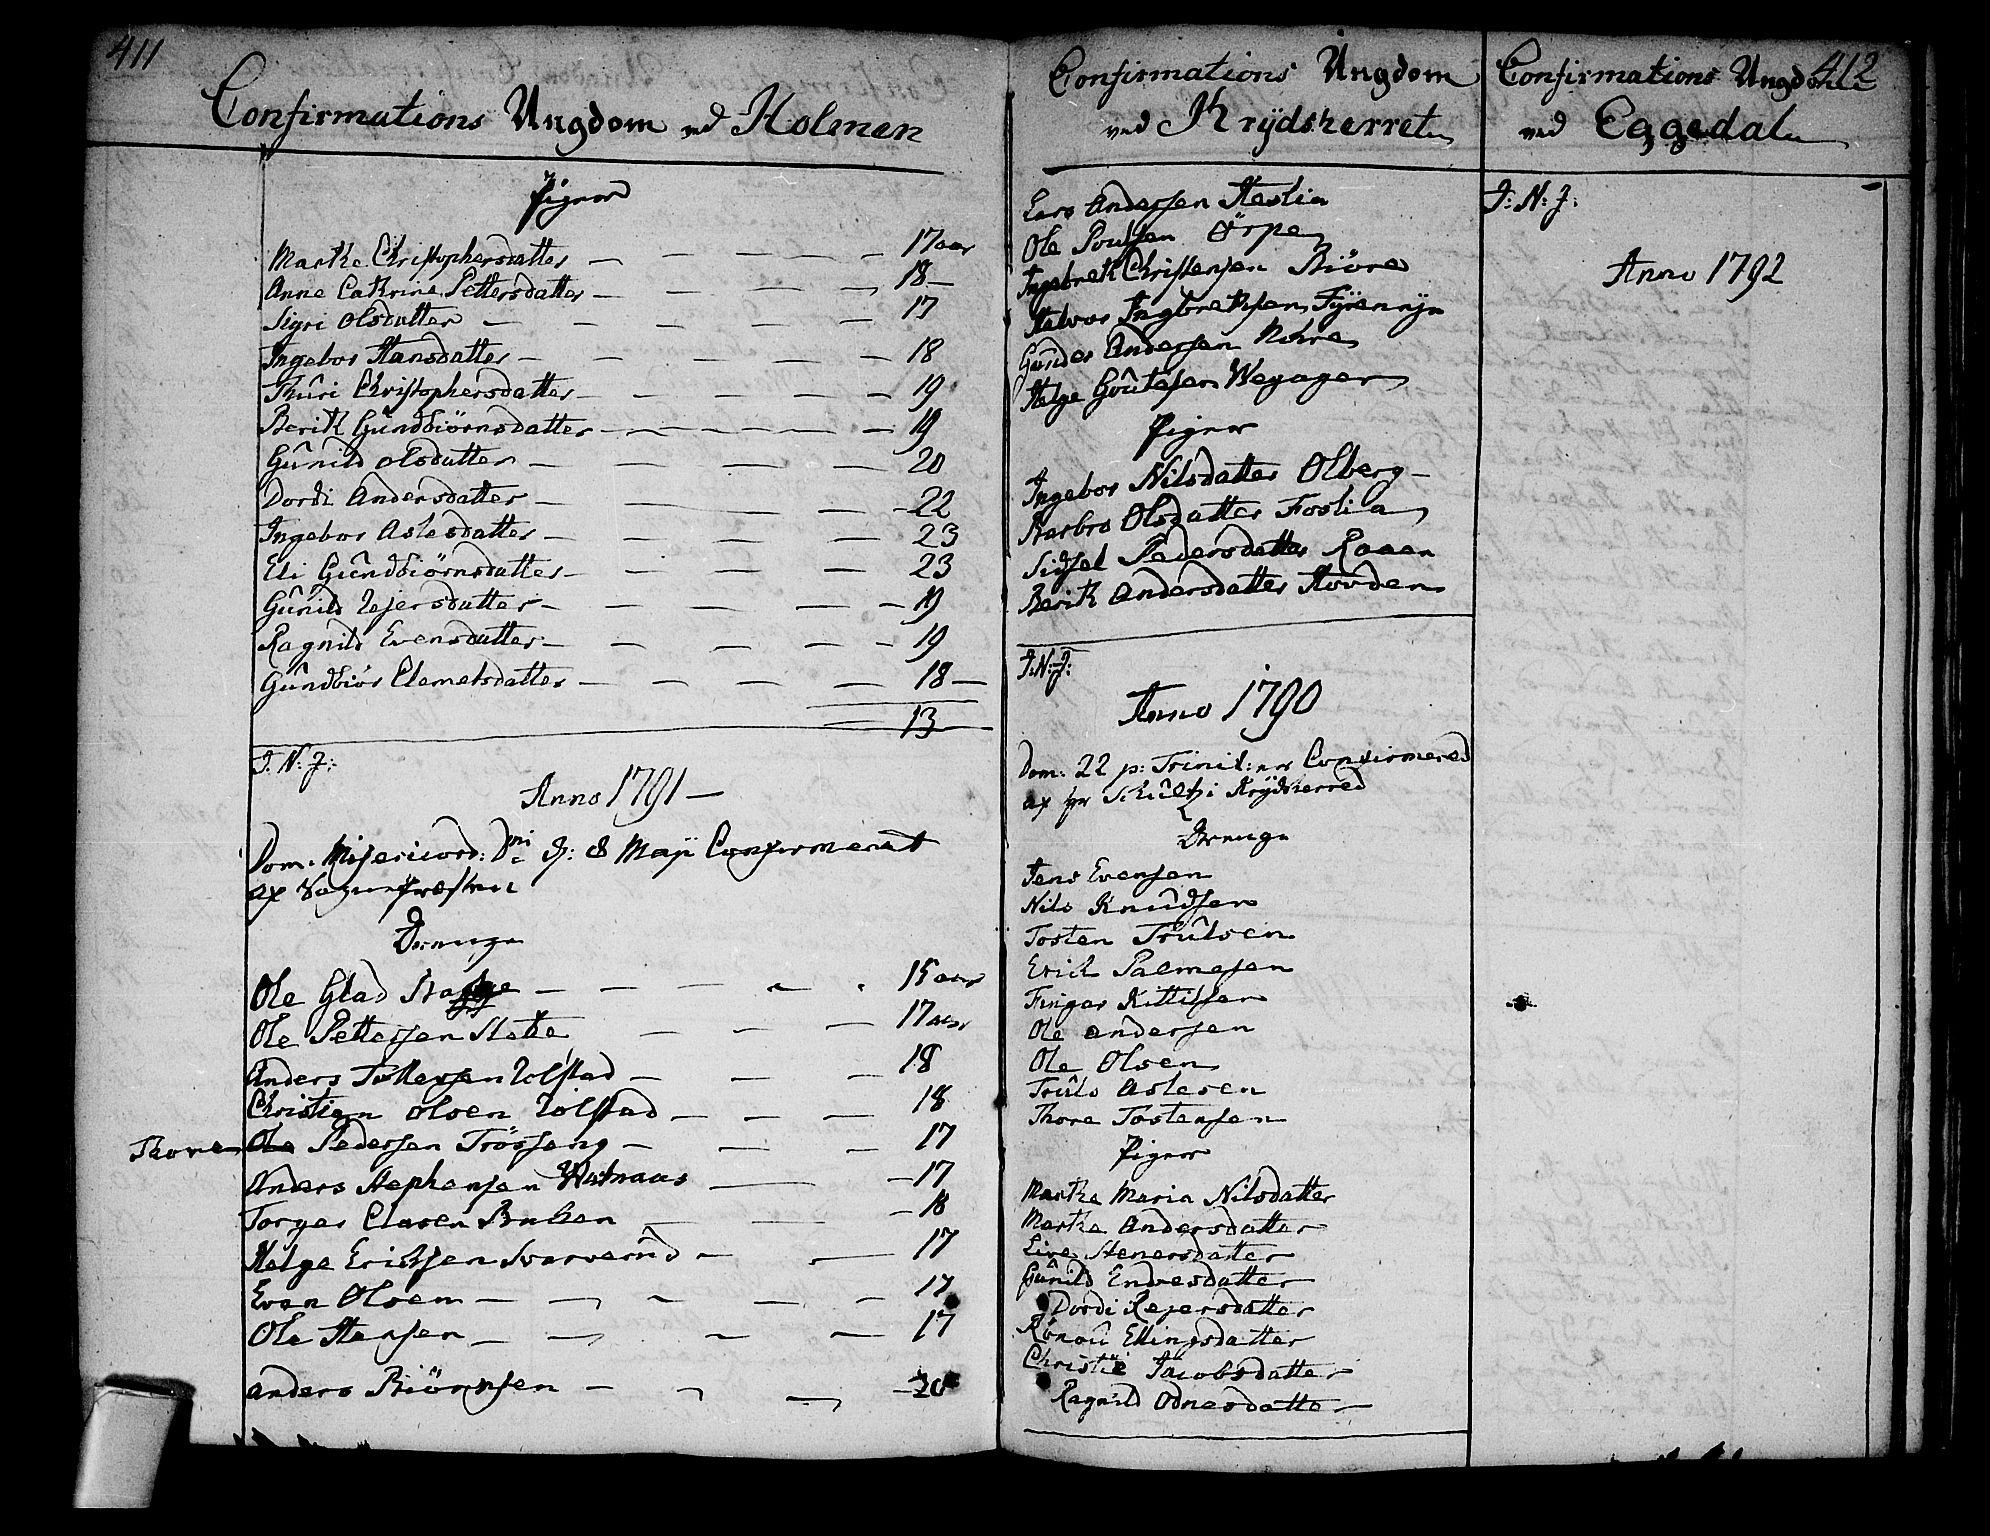 411
Confirmations Ungdom ved Holmen
Piger
Marthe Christophersdatter — — — — 17 aar
Anne Cathrine Pettersdatter — — — — 18 —
Sigri Olsdatter — — — — 17
Ingebor Hansdatter — — — — 18
Thuri Christophersdatter — — — — 19
Berit Gundbiørnsdatter — — — — 19
Gunild Olsdatter — — — — 20
Dordi Andersdatter — — — — 22
Ingebor Aslesdatter — — — — 23
Eli Gundbiørnsdatter — — — — 23
Gunild Rejersdatter — — — — 19
Ragnild Evensdatter — — — — 19
Gundbiør Clemetsdatter — — — — 18 —
13
J: N: J:
Anno 1791 —
Dom. Misericord: Dni d: 8 Maji Confirmeret
af
Drenge
Ole Glad — — — 15 aar
Ole Pettersen — — — 17 aar
Anders Tollefsen Holstad — — — 18
Christian Olsen Holstad — — — 18
Thore Ole Pedersen — — — 17
Anders Stephensen — — 17
Torger Clasen — — — 18
Helge Erichsen Svarverud — — 17
Even Olsen — — — — 17
Ole Hansen — — — — 17
Anders Biørnsen — — — 20
412
Confirmations Ungdom
ved Krydsherret
Lars Andersen Heslia
Ole Poulsen Ørpen
Ingebret Christensen Biøre
Halvor Ingbrethsen
Gunder Andersen Nohre
Helge Goutesen
Piger
Ingebor Nilsdatter Olberg —
Barbro Olsdatter Foslia
Sidsel Pedersdatter Raaen
Berit Andersdatter Hovden
J: N: J:
Anno 1790
Dom: 22 p: Trinit: er Confirmered
af hr Schultz i Krydsherred
Drenge
Jens Evensen
Nils Knudsen
Tosten Trulsen
Erich Palmesen
Fingar Kittilsen
Ole Andersen
Ole Olsen
Truls Aslesen
Thore Tostensen
Piger
Marthe Maria Nilsdatter
Marthe Andersdatter
Live Stenersdatter
Gunild Endresdatter
Dordi Rejersdatter
Rønau Ellingsdatter
Christie Jacobsdatter
Ragnild Odnesdatter
Confirmations Ungdom
ved Eggedal
J: N: J:
Anno 1792